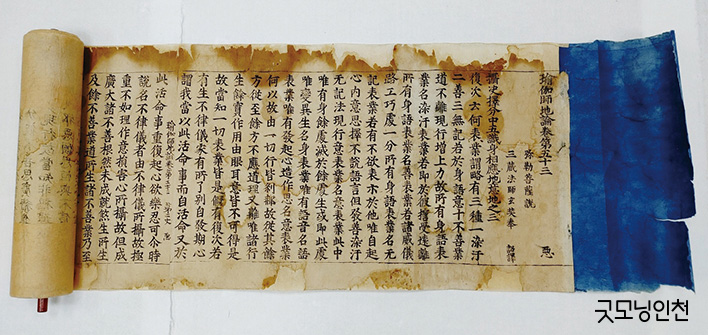 瑜伽師地論卷第五十三
彌勒菩薩說
三藏法師玄奘奉 詔譯
惡
攝決擇分中五識身相應地意地之三
復次云何表業謂略有三種一染汙
二善三無記若於身語意十不善業
道不離現行增上力故所有身語表
業名染汙表業若即於彼誓受遠離
所有身語表業名善表業若諸威儀
路工巧處一分所有身語表業名无
記表業若有不欲表示於他唯自起
心內意思擇不說語言但發善染汙
无記法現行意表業名意表業此中
唯有身餘處滅於餘處生或即此處
唯變異生名身表業唯有語音名語
表業唯有發起心造作思名意表業
何以故由一切行皆剎那故從其餘
方徙至餘方不應道理又離唯諸行
生餘實作用由眼耳意皆不可得是
故當知一切表業皆是假有復次若
有生不律儀家有所了別自發期心
謂我當以此活命事而自活命又於
此活命事重復起心欲樂忍可尒時
說名不律儀者由不律儀所攝故極
重不如理作意損害心所攝故但成
廣大諸不善根然未成就煞生所生
及餘不善業道所生諸不善業乃至
굿모닝인천